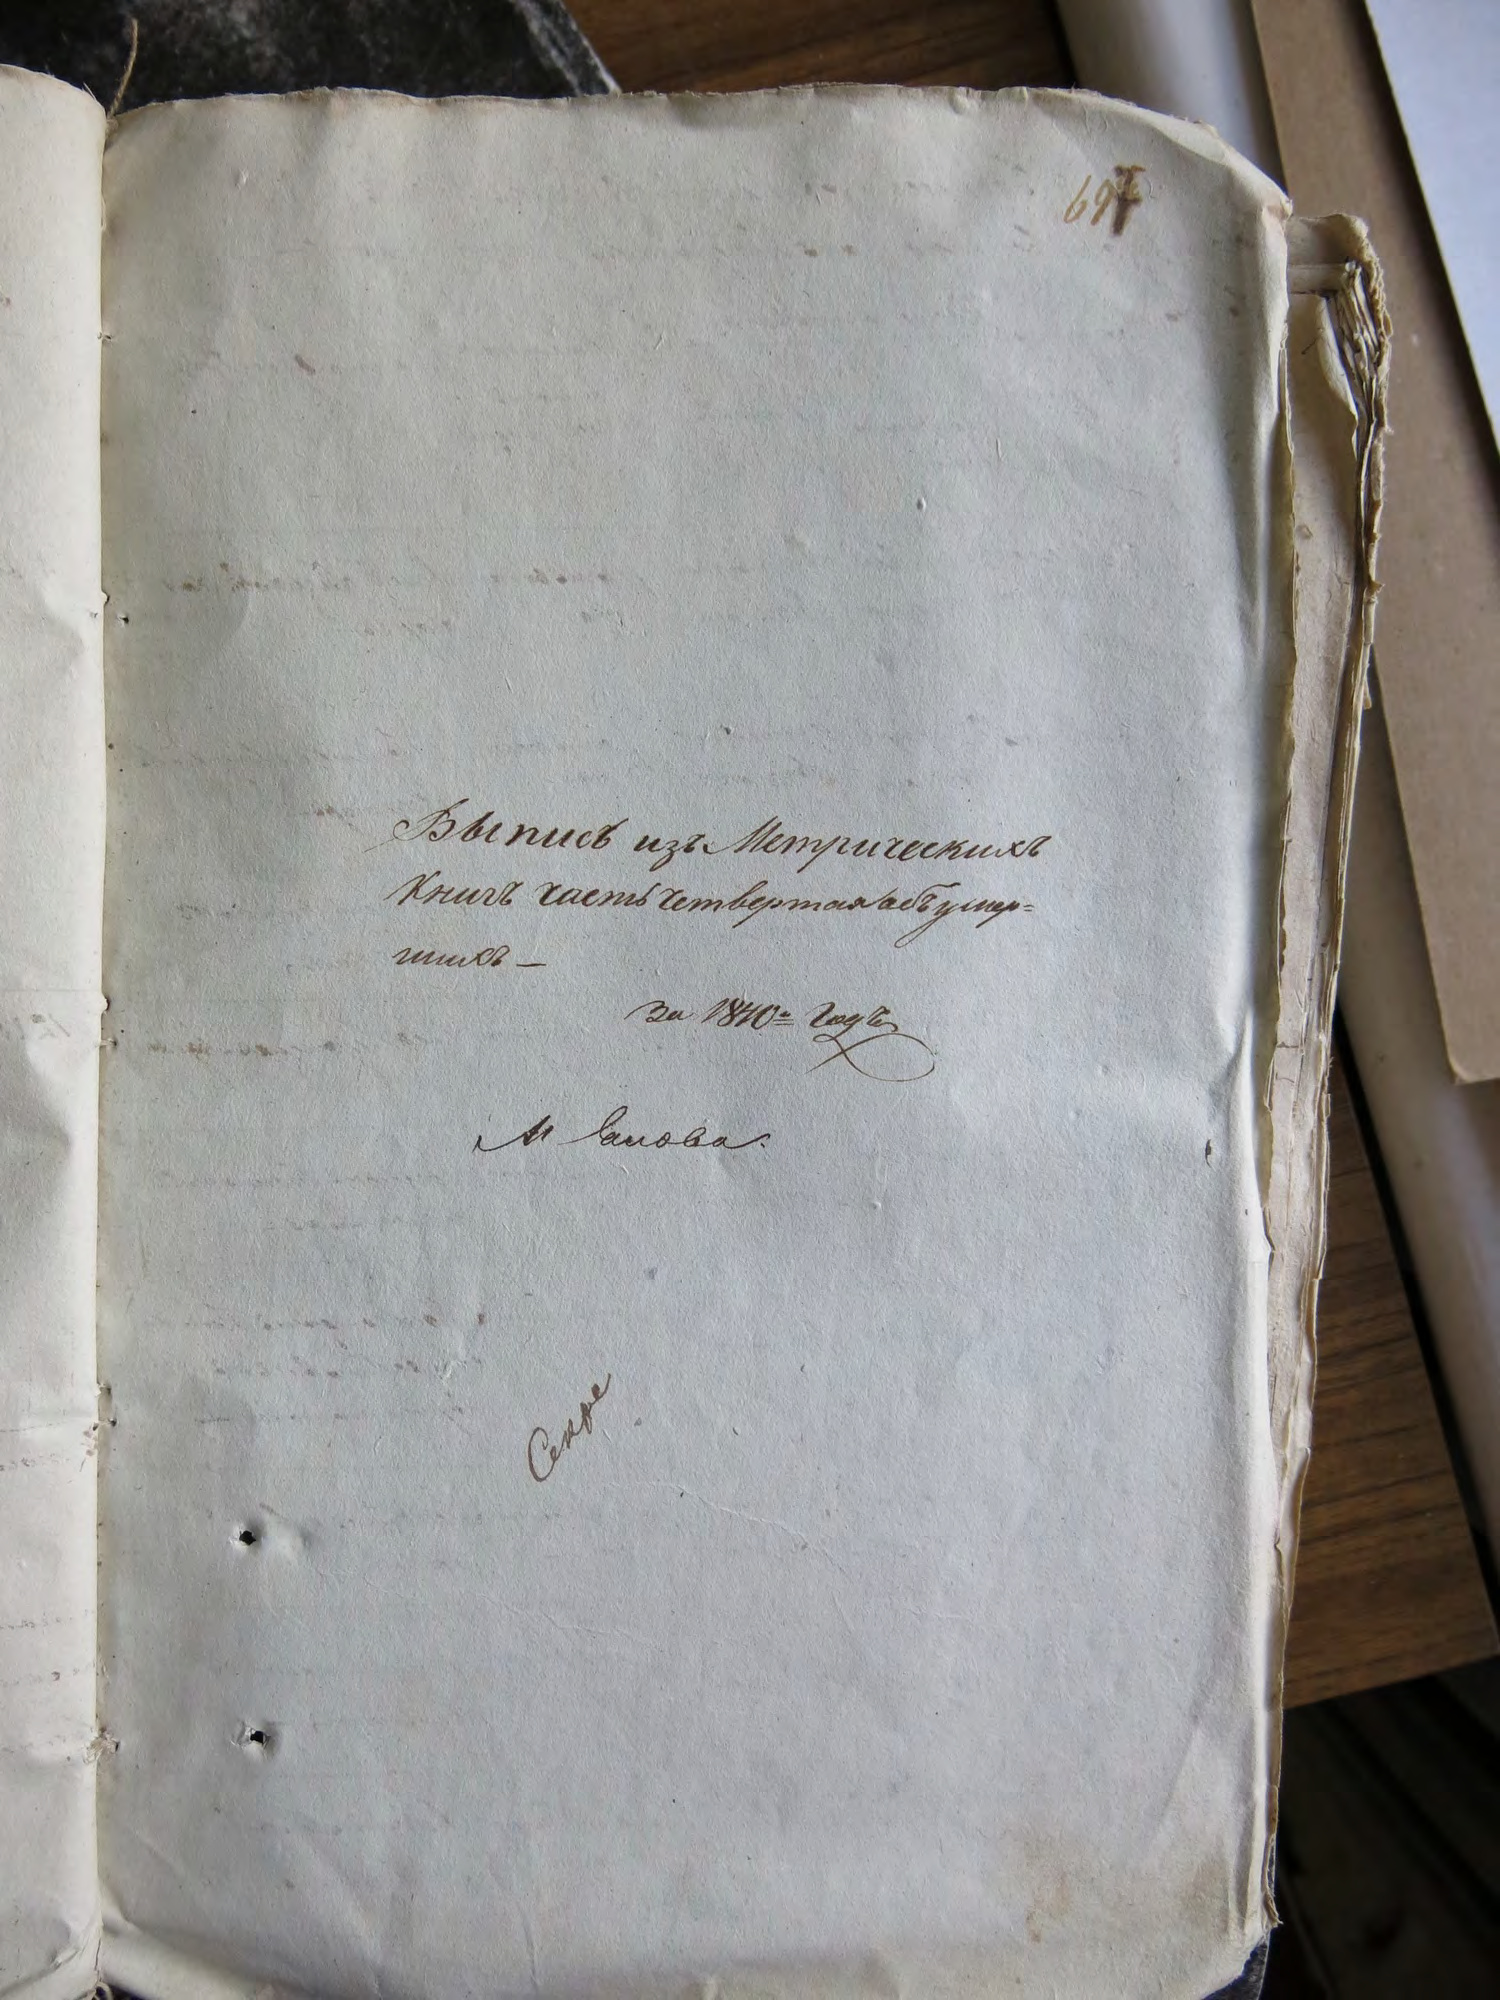 Выпись изъ Метрическихъ
Книгъ часть четвертая объ умер=
шихъ —
за 1840й годъ
М
Секре